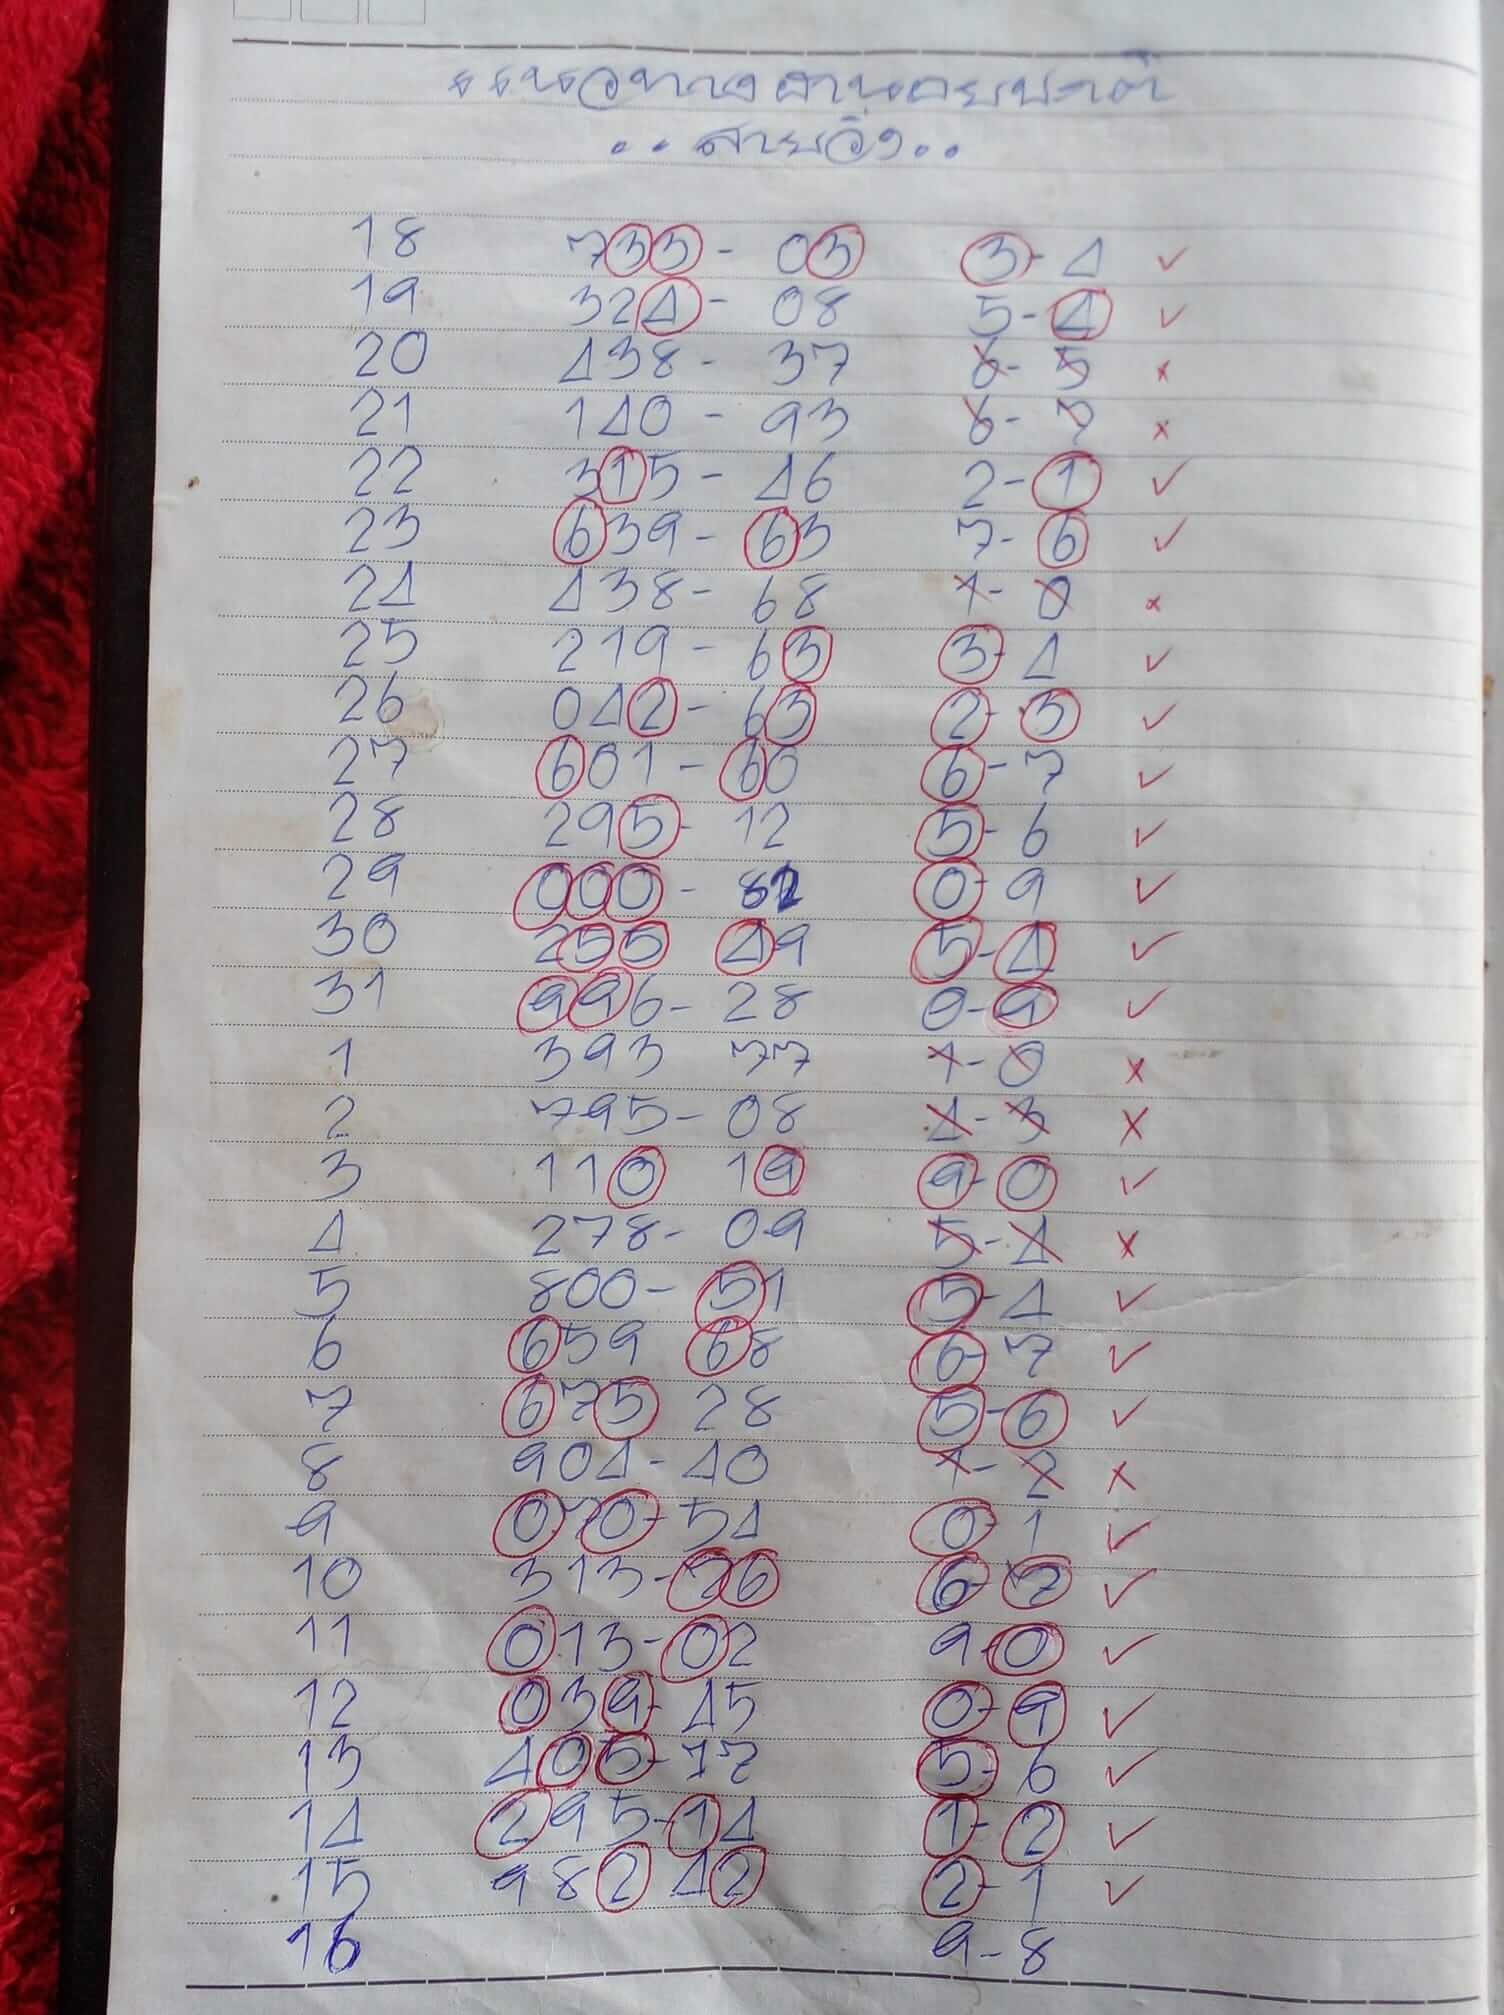 แนวทางฮานอยปกติ
..สายวิ่ง..
18 733 - 03 3-4 ✓
19 324 - 08 5-4 ✓
20 438 - 37 6-5 x
21 140 - 93 8-7 x
22 315 - 46 2-1 ✓
23 639 - 63 7-6 ✓
24 438 - 68 1-0 x
25 219 - 63 3-4 ✓
26 042 - 63 2-3 ✓
27 601 - 60 6-7 ✓
28 295 - 12 5-6 ✓
29 000 - 82 0-9 ✓
30 255 49 5-4 ✓
31 996 - 28 0-9 ✓
1 393 77 1-0 x
2 795 - 08 4-3 x
3 110 19 9-0 ✓
4 278 - 09 5-4 x
5 800 - 51 5-4 ✓
6 659 68 6-7 ✓
7 675 28 5-6 ✓
8 904 - 40 1-2 x
9 070 - 54 0-1 ✓
10 313 - 76 6-7 ✓
11 013 - 02 9-0 ✓
12 039 - 45 0-9 ✓
13 405 - 77 5-6 ✓
14 295 - 14 1-2 ✓
15 982 42 2-1 ✓
16 9-8